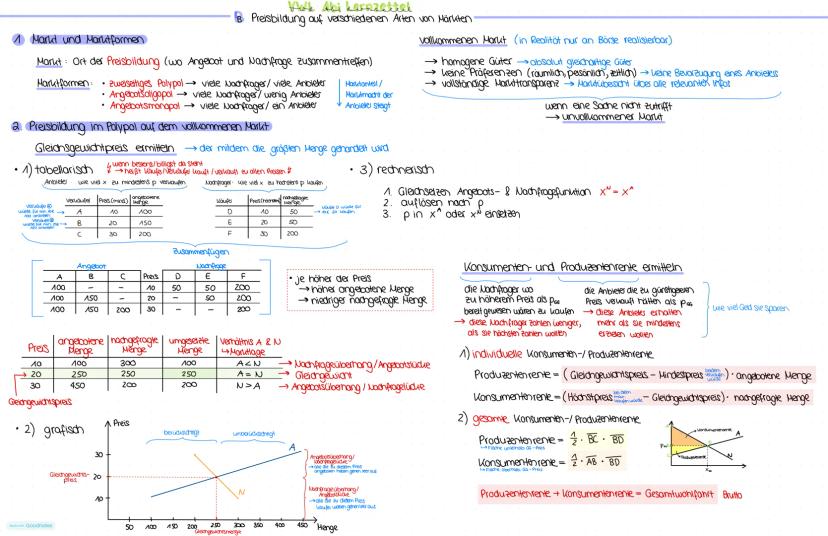 VWL Abi Lernzettel
B Preisbildung auf verschiedenen Arten von Märkten
1 Markt und Marktformen
Markt: Ort der Preisbildung (wo Angebot und Nachfrage zusammentreffen)
Marktformen: • zweiseitiges Polypol → viele Nachfrager/ viele Anbieter
• Angebotsoligopol → viele Nachfrager/ wenig Anbieter
• Angebotsmonopol → viele Nachfrager/ ein Anbieter
Marktanteil/
Marktmacht der
Anbieter steigt
vollkommenen Markt (in Realität nur an Börse realisierbar)
→ homogene Güter → absolut gleichartige Güter
→ keine Präferenzen (räumlich, persönlich, zeitlich) → keine Bevorzugung eines Anbieters
→ vollständige Markttransparenz → Marktübersicht über alle relevanten Infos
wenn eine Sache nicht zutrifft
→ unvollkommener Markt
2 Preisbildung im Polypol auf dem vollkommenen Markt
Gleichgewichtpreis ermitteln → der mit dem die größten Menge gehandelt wird
• 1) tabellarisch
Anbieter wie viel x zu mindestens p verkaufen
Nachfrager wie viel x zu höchstens p kaufen
Verkäufer Preis (mind.) angebotene Menge
A 10 100
B 20 150
C 30 200
Käufer Preis (höchstens) nachgefragte Menge
D 10 50
E 20 50
F 30 200
zusammenfügen
Angebot Nachfrage
A B C Preis D E F
100 – – 10 50 50 200
100 150 – 20 – 50 200
100 150 200 30 – – 200
• je höher der Preis
→ höher angebotene Menge
→ niedriger nachgefragte Menge
Preis angebotene Menge nachgefragte Menge umgesetzte Menge Verhältnis A & N ↳ Marktlage
10 100 300 100 A < N → Nachfrageüberhang / Angebotslücke
20 250 250 250 A = N → Gleichgewicht
30 450 200 200 N > A → Angebotsüberhang / Nachfragelücke
Gleichgewichtspreis
• 2) grafisch
Preis
berücksichtigt unberücksichtigt
30
20
10
Gleichgewichts-
preis
A
N
Angebotsüberhang/
Nachfragelücke
Nachfrageüberhang/
Angebotslücke
50 100 150 200 250 300 350 400 450 Menge
Gleichgewichtsmenge
• 3) rechnerisch
1. Gleichsetzen Angebots- & Nachfragfunktion xᴺ = xᴬ
2. auflösen nach p
3. p in xᴬ oder xᴺ einsetzen
Konsumenten- und Produzentenrente ermitteln
die Nachfrager wo
zu höherem Preis als pGG
bereit gewesen wären zu kaufen
→ diese Nachfrager zahlen weniger,
als sie höchsten zahlen wollten
die Anbieter die zu günstigeren
Preis verkauft hätten als pGG
→ diese Anbieter erhalten
mehr als sie mindestens
erzielen wollen
wie viel Geld sie sparen
1) individuelle Konsumenten-/ Produzentenrente
Produzentenrente = (Gleichgewichtspreis – Mindestpreis) · angebotene Menge
Konsumentenrente = (Höchstpreis – Gleichgewichtspreis) · nachgefragte Menge
2) gesamte Konsumenten-/ Produzentenrente
Produzentenrente = 1/2 · BC · BD
Konsumentenrente = 1/2 · AB · BD
Produzentenrente + Konsumentenrente = Gesamtwohlfahrt Brutto
Goodnotes